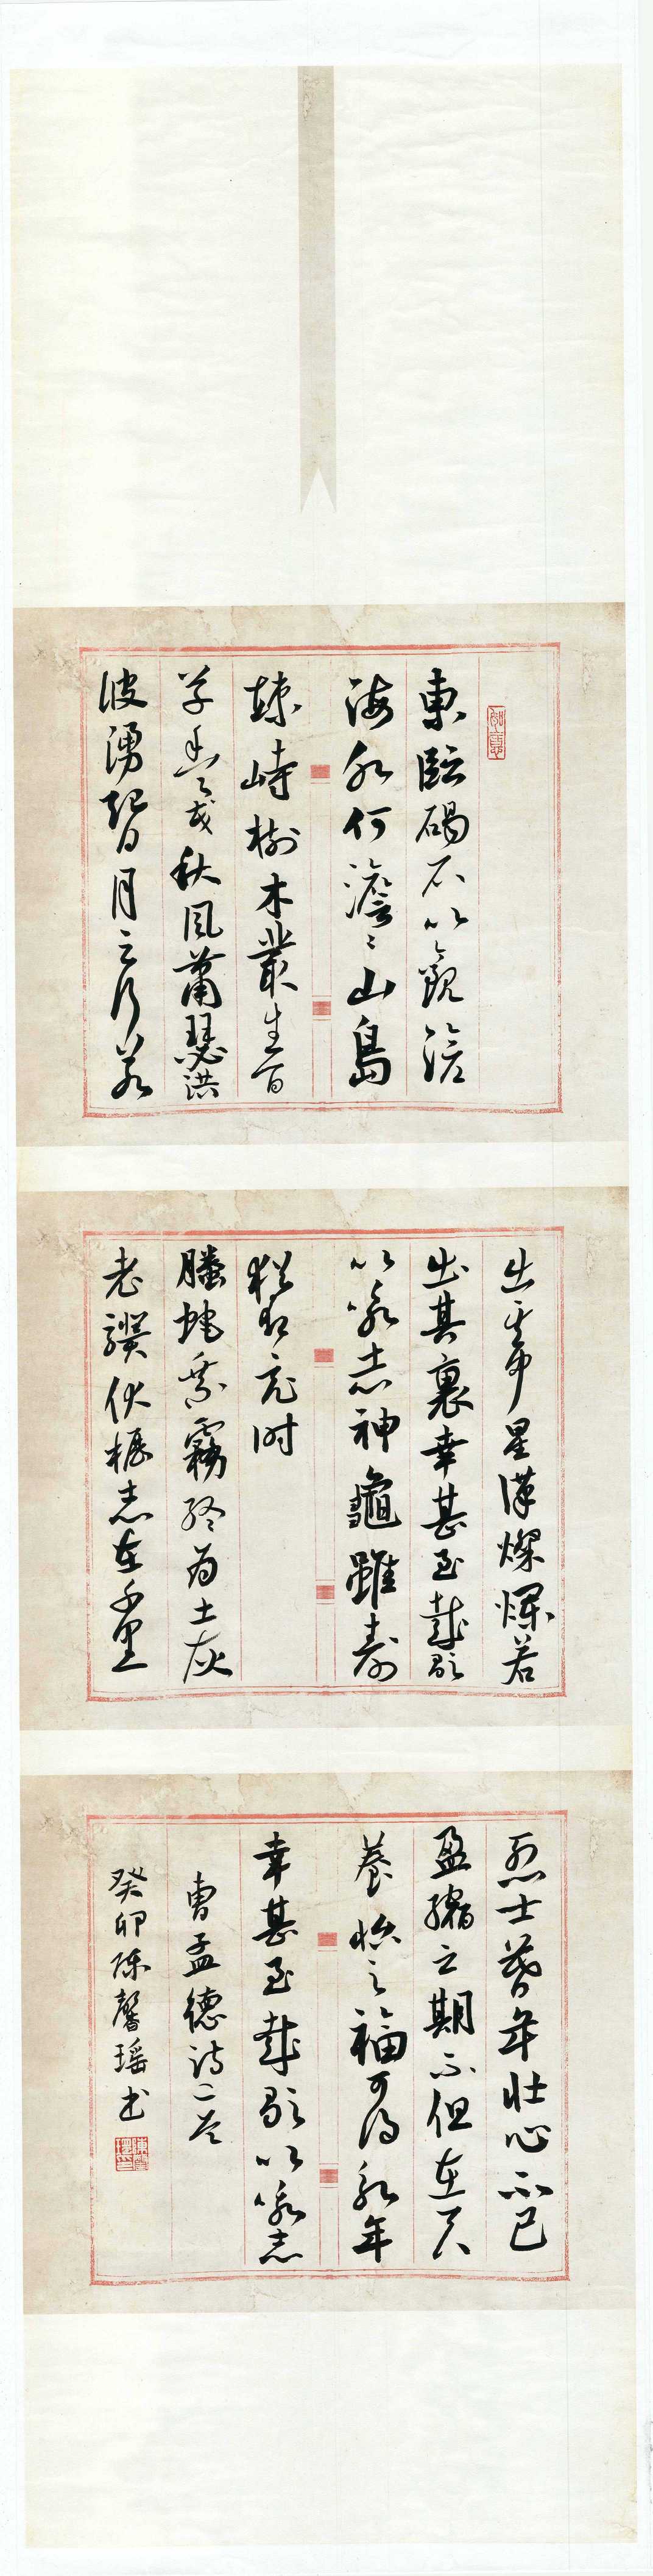 東臨碣石以觀滄
海水何澹〻山島
竦峙樹木叢生百
草豐茂秋風蕭瑟洪
波湧起日月之行若
出其中星漢燦爛若
出其裏幸甚至哉歌
以詠志神龜雖壽
猶有竟時
騰蛇乘霧終為土灰
老驥伏櫪志在千里
烈士暮年壯心不已
盈縮之期不但在天
養怡之福可得永年
幸甚至哉歌以詠志
曹孟德詩二首
癸卯陳馨瑶书